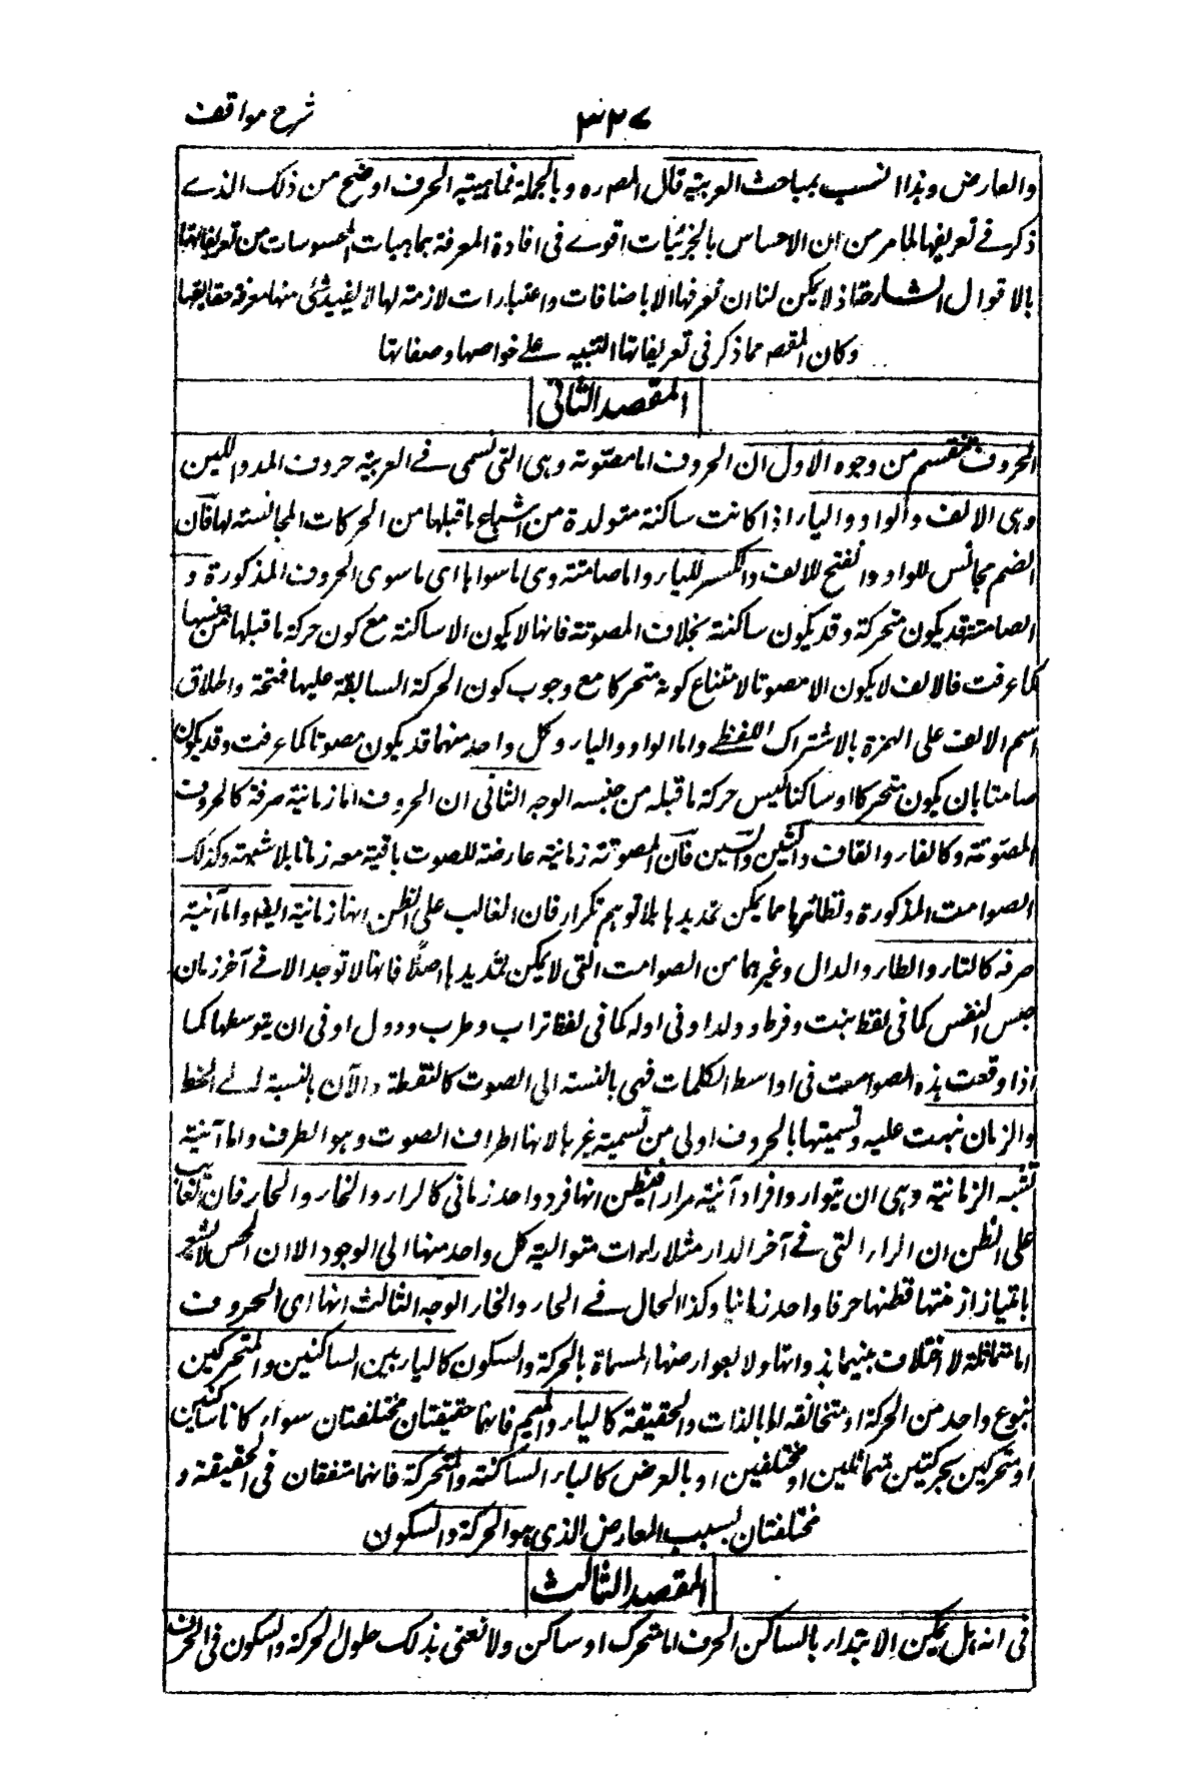 شرح مواقف
٣٢٧
والعارض وہذا انسب بمباحث العربیۃ قال المصرہ وبالجملۃ فماہیۃ الحرف اوضح من ذلک الذے
ذکرفے تعریفہا لما مر من ان الاحساس بالجزئیات اقوے فی افادۃ المعرفۃ بماہیات المحسوسات من تعریفاتہا
بالاقوال الشارحۃ اذ لا یمکن لنا ان نعرفہا الا باضافات واعتبارات لازمۃ لہا لا یفید شئ منہا معرفۃ حقایقہا
وکان المقصہ مما ذکر فی تعریفاتہا التنبیہ علے خواصہا وصفاتہا
المقصد الثانی
الحروف تنقسم من وجوہ الاول ان الحروف اما مصوتۃ وہی التی تسمی فے العربیۃ حروف المد واللین
وہی الالف والواو والیاء اذا کانت ساکنۃ متولدۃ من اشباع ما قبلہا من الحرکات المجانسۃ لہا فان
الضم مجانس للواو والفتح للالف والکسر للیاء واما صامتۃ وہی ما سواہا ای ما سوی الحروف المذکورۃ و
الصامتۃ قد یکون متحرکۃ وقد یکون ساکنۃ بخلاف المصوتۃ فانہا لا یکون الا ساکنۃ مع کون حرکۃ ما قبلہا من جنسہا
کما عرفت فالالف لا یکون الا مصوتا لامتناع کونہ متحرکا مع وجوب کون الحرکۃ السابقۃ علیہا فتحۃ واطلاق
اسم الالف علی الہمزۃ بالاشتراک اللفظے واما الواو والیاء وکل واحد منہما قد یکون مصوتا کما عرفت وقد یکون
صامتا بان یکون متحرکا او ساکنا لیس حرکۃ ما قبلہ من جنسہ الوجہ الثانی ان الحروف اما زمانیۃ صرفۃ کالحروف
المصوتۃ وکالفاء والقاف والشین والسین فان المصوتۃ زمانیۃ عارضۃ للصوت باقیۃ معہ زمانا بلا شبہۃ وکذلک
الصوامت المذکورۃ ونظائرہا مما یمکن تمدیدہا بلا توہم تکرار فان الغالب علی الظن انہا زمانیۃ ایضا واما آنیۃ
صرفہ کالتاء والطاء والدال وغیرہما من الصوامت التی لا یمکن تمدیدہا اصلًا فانہا لا توجد الا فے آخر زمان
حبس النفس کما فی لفظ بنت وفرط وولد او فی اولہ کما فی لفظ تراب وطرب ودول او فی ان یتوسطہما کما
اذا وقعت ہذہ الصوامت فی اواسط الکلمات فہی بالنسبۃ الی الصوت کالنقطۃ والآن بالنسبۃ لے الخط
والزمان نبہت علیہ وتسمیتہا بالحروف اولی من تسمیۃ غیرہا لانہا اطراف الصوت وہو الطرف واما آنیۃ
تشبہ الزمانیۃ وہی ان یتوارد افراد آنیۃ مرارا فیظن انہا فرد واحد زمانی کالراء والخاء والحاء فان الغالب
علی الظن ان الراء التی فے آخر الدار مثلا راءات متوالیۃ کل واحد منہا انی الوجود الا ان الحس لا یشعر
بامتیاز ازمنتہا فظنہا حرفا واحد زمانیا وکذا الحال فے الحاء والخاء الوجہ الثالث انہا ای الحروف
اما متماثلۃ لا اختلاف بینہما بذواتہا ولا بعوارضہا المسماۃ بالحرکۃ والسکون کالیاء بین الساکنین والمتحرکین
بنوع واحد من الحرکۃ او متخالفہ اما بالذات والحقیقۃ کالیاء والمیم فانہما حقیقتان مختلفتان سواء کانا ساکنین
او متحرکین بحرکتین متماثلین او مختلفین او بالعرض کالباء الساکنۃ والمتحرکۃ فانہما متفقان فی الحقیقۃ و
مختلفتان بسبب العارض الذی ہو الحرکۃ والسکون
المقصد الثالث
فی انہ ہل یمکن الابتداء بالساکن الحرف اما متحرک او ساکن ولا نعنی بذلک حلول الحرکۃ والسکون فی الحرف